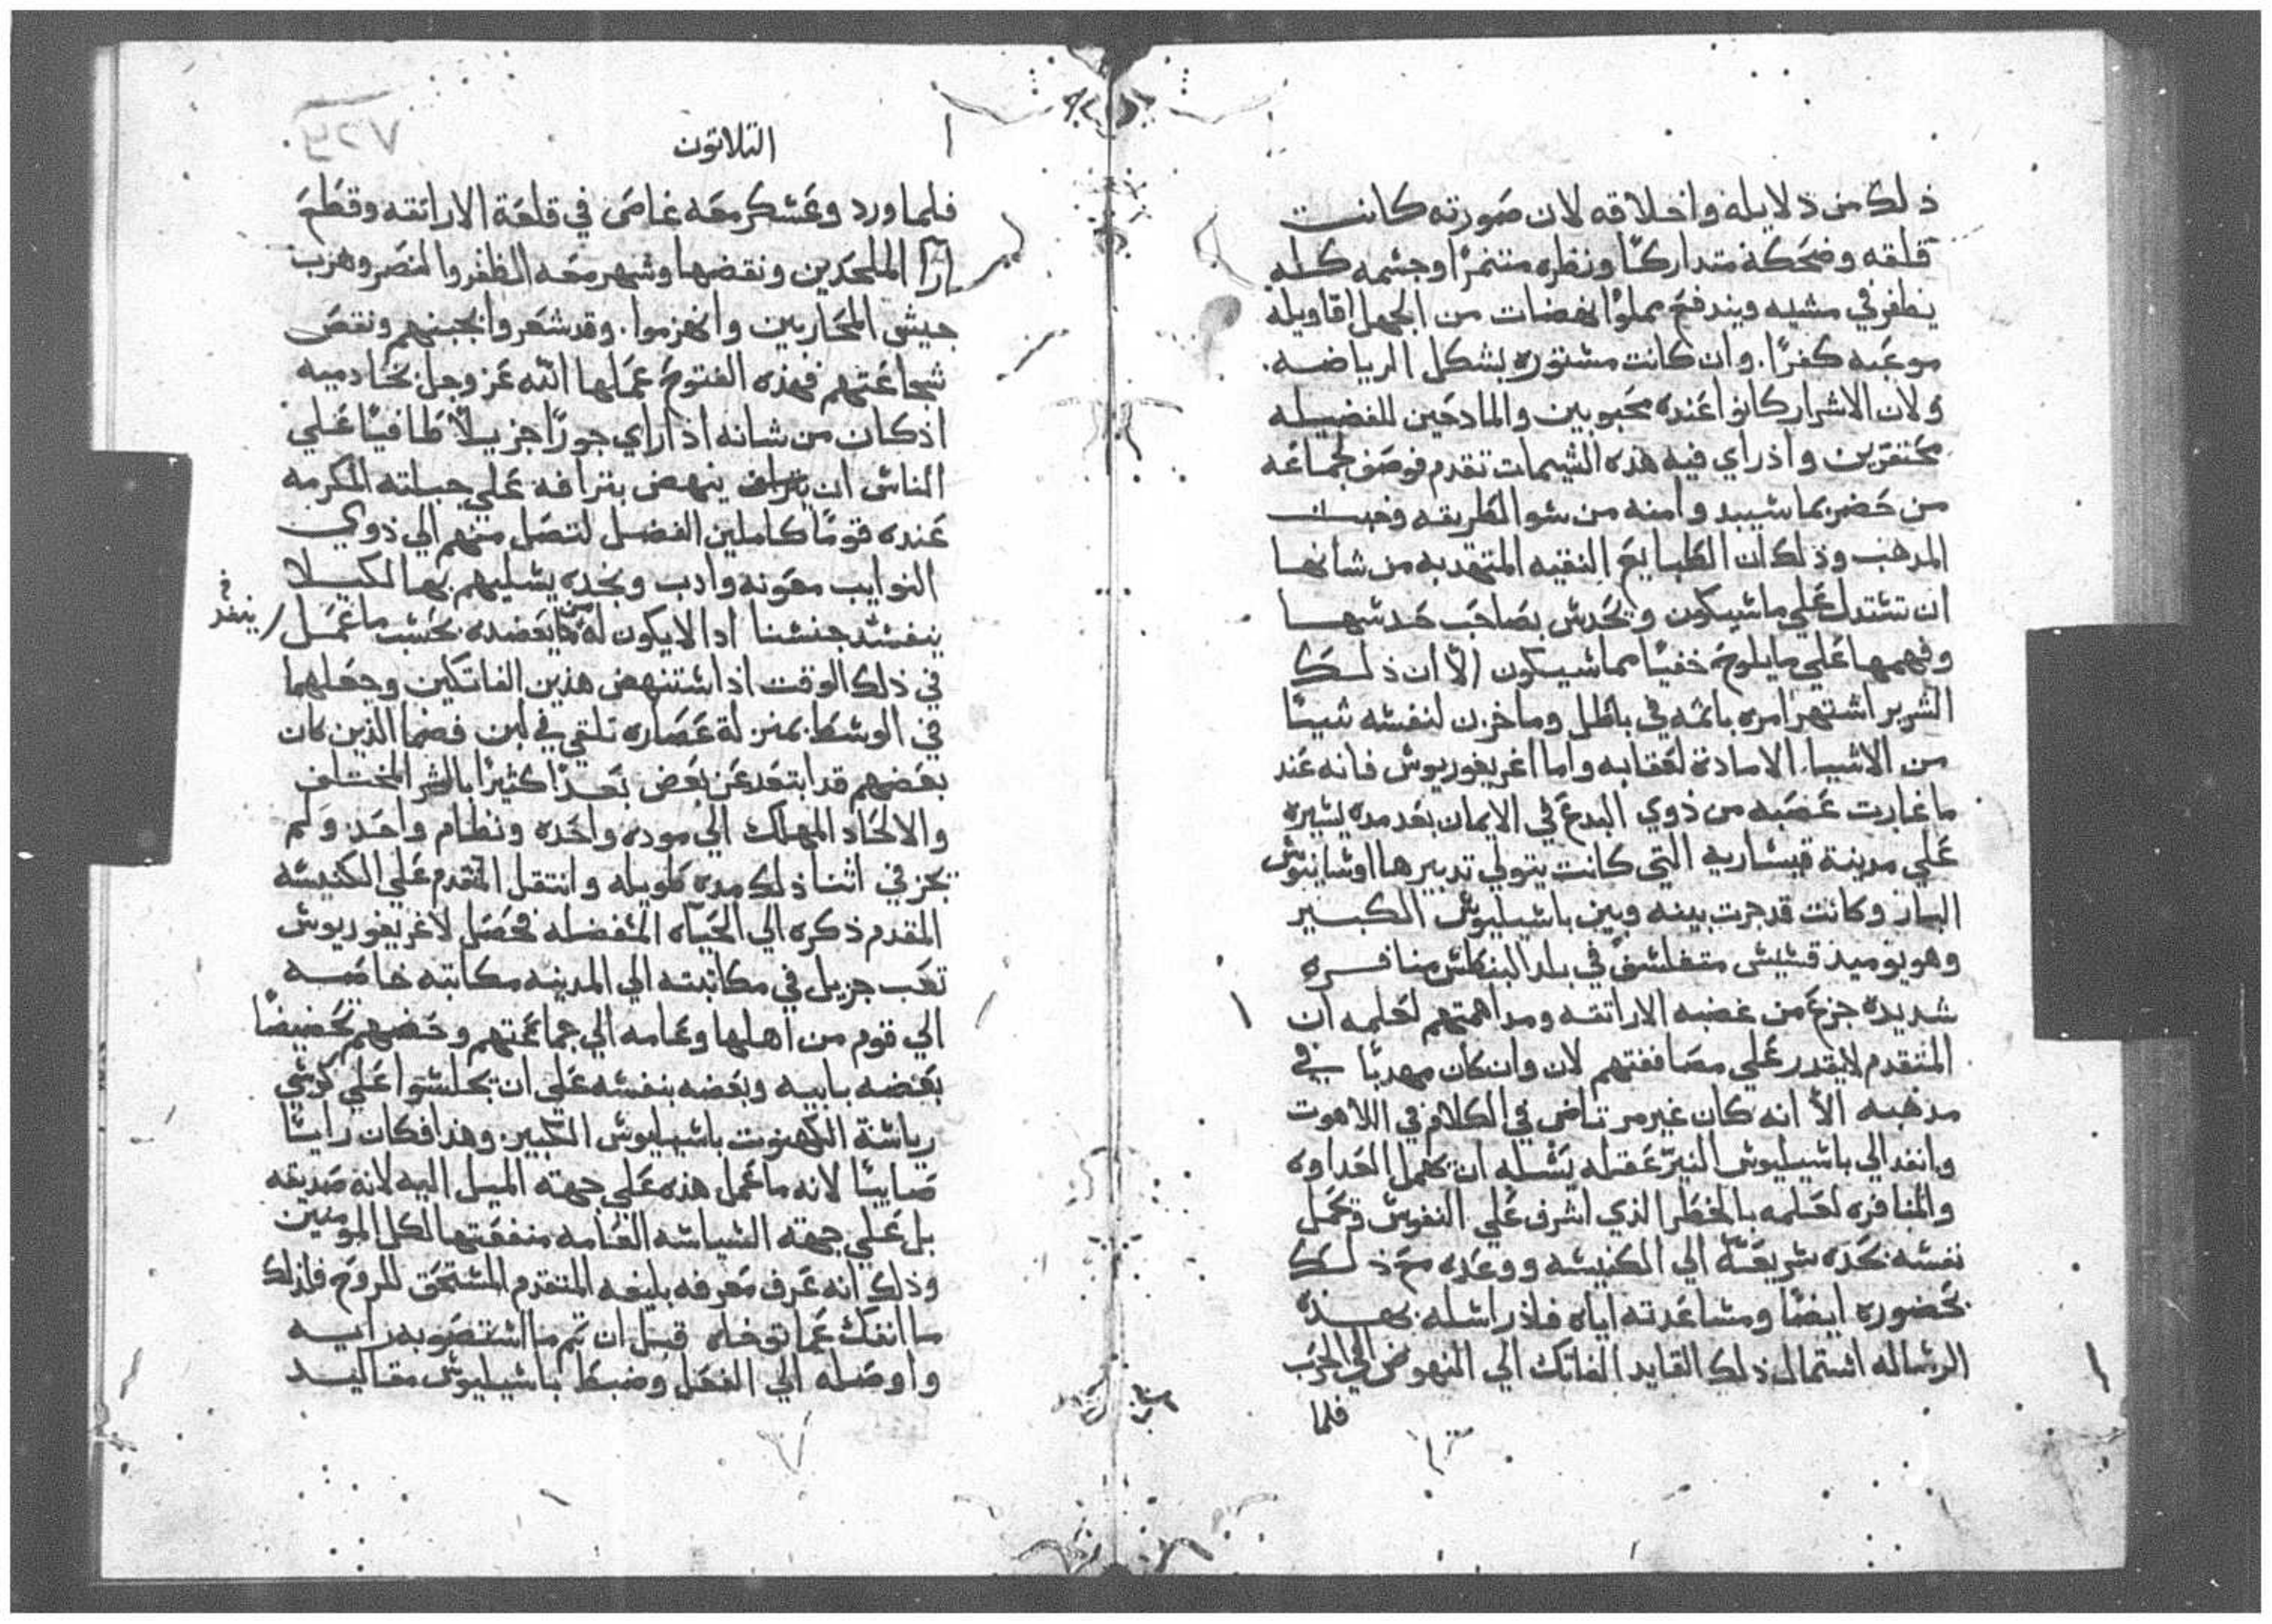 ذلك من دلايله واخلاقه لان صورته كانت
قلقه وضحكه متداركًا ونظره متنمرًا وجسمه كله
يطفر في مشيه ويندفع مملوًا نهضات من الجهل اقاويله
موعبه كفرًا. وان كانت مستوره بشكل الرياضه.
ولان الاشرار كانوا عنده محبوبين والمادحين للفضيله
محتقرين واذ راي فيه هذه الشيمات تقدم فوصف لجماعه
من حضر بما سيبد وامنه من سو الطريقه وخبث
المدهب وذلك ان الطبايع النقيه المتهدبه من شانها
ان تستدل علي ماسيكون وتحدس بصاحب حدسها
وفهمها علي مايلوح خفيًا مماسيكون الّا ان ذلك
الشرير اشتهر امره باثمه في باطل وماخزن لنفسه شيًا
من الاشيا الامادة لعقابه واما اغريغوريوس فانه عند
ماغارت عصبه من ذوي البدع في الايمان بعد مده يسيره
علي مدينة قيساريه التي كانت يتولي تدبيرها اوسابيوس
البار وكانت قد جرت بينه وبين باسيليوس الكبير
وهو يوميذ قسيس متفلسف في بلد البنطس منافره
شديده جزع من غضبه الاراتقه ومداهمتهم لعلمه ان
المتقدم لايقدر علي مصاففتهم لان وان كان مهدبًا في
مذهبه الّا انه كان غير مرتاض في الكلام في اللاهوت
وانفد الي باسيليوس النير عقله يسله ان يهمل العداوه
والمنافره لعلمه بالخطر الذي اشرف علي النفوس وتحمل
نفسه نجده سريعة الي الكنيسه ووعده مع ذلك
بحضوره ايضًا ومساعدته اياه فاذ راسله بهذه
الرساله استمال ذلك القايد الفاتك الي النهوض الي الحرب
فلما
التلاتون
فلما ورد وعسكر معه غاص في قلعة الاراتقه وقطع
ارا الملحدين ونقضها وشهر معه الظفر والنصر وهزب
جيش المحاربين وانهزموا. وقد شعروا بجبنهم ونقص
شجاعتهم فهذه الفتوح عملها الله عز وجل بخادميه
اذكان من شانه اذا راي جورًا جزيلًا طافيًا علي
الناس ان ينهض بترافه علي جبلته المكرمه
عنده قومًا كاملين الفضل لتصل منهم الي ذوي
النوايب معونه وادب ونجده يسليهم بها لكيلا
ينفسد جنسنا اذا لايكون له من يعضده بحسب ماعمل
ينفد
في ذلك الوقت اذا ستنهض هذين الفاتكين وجعلهما
في الوسط بمنزلة عصاره تلقي في لبن فضما الذين كان
بعضهم قد ابتعد عن بعض بعدًا كثيرًا بالشر المختلف
والالحاد المهلك الي موده واحده ونظام واحد ولم
تجز في اثنا ذلك مده طويله وانتقل المتقدم علي الكنيسه
المقدم ذكره الي الحياه المفضله فحصل لاغريغوريوس
تعب جزيل في مكاتبته الي المدينه مكاتبه خاصه
الي قوم من اهلها وعامه الي جماعتهم وحضهم تحضيضًا
بعضه بابيه وبعضه بنفسه علي ان يجلسوا علي كرسي
رياسة الكهنوت باسيليوس الكبير. وهذا فكان رايًا
صايبًا لانه ماعمل هذه علي جهة الميل اليه لانه صديقه
بل علي جهة السياسه العامه منفعتها لكل المومنين
وذلك انه عرف معرفه بليغه المتقدم المستحق للروح فلذلك
ماانفك عما توخاه قبل ان تم مااستصوبه رايه
واوصله الي الفعل وضبط باسيليوس مقاليد